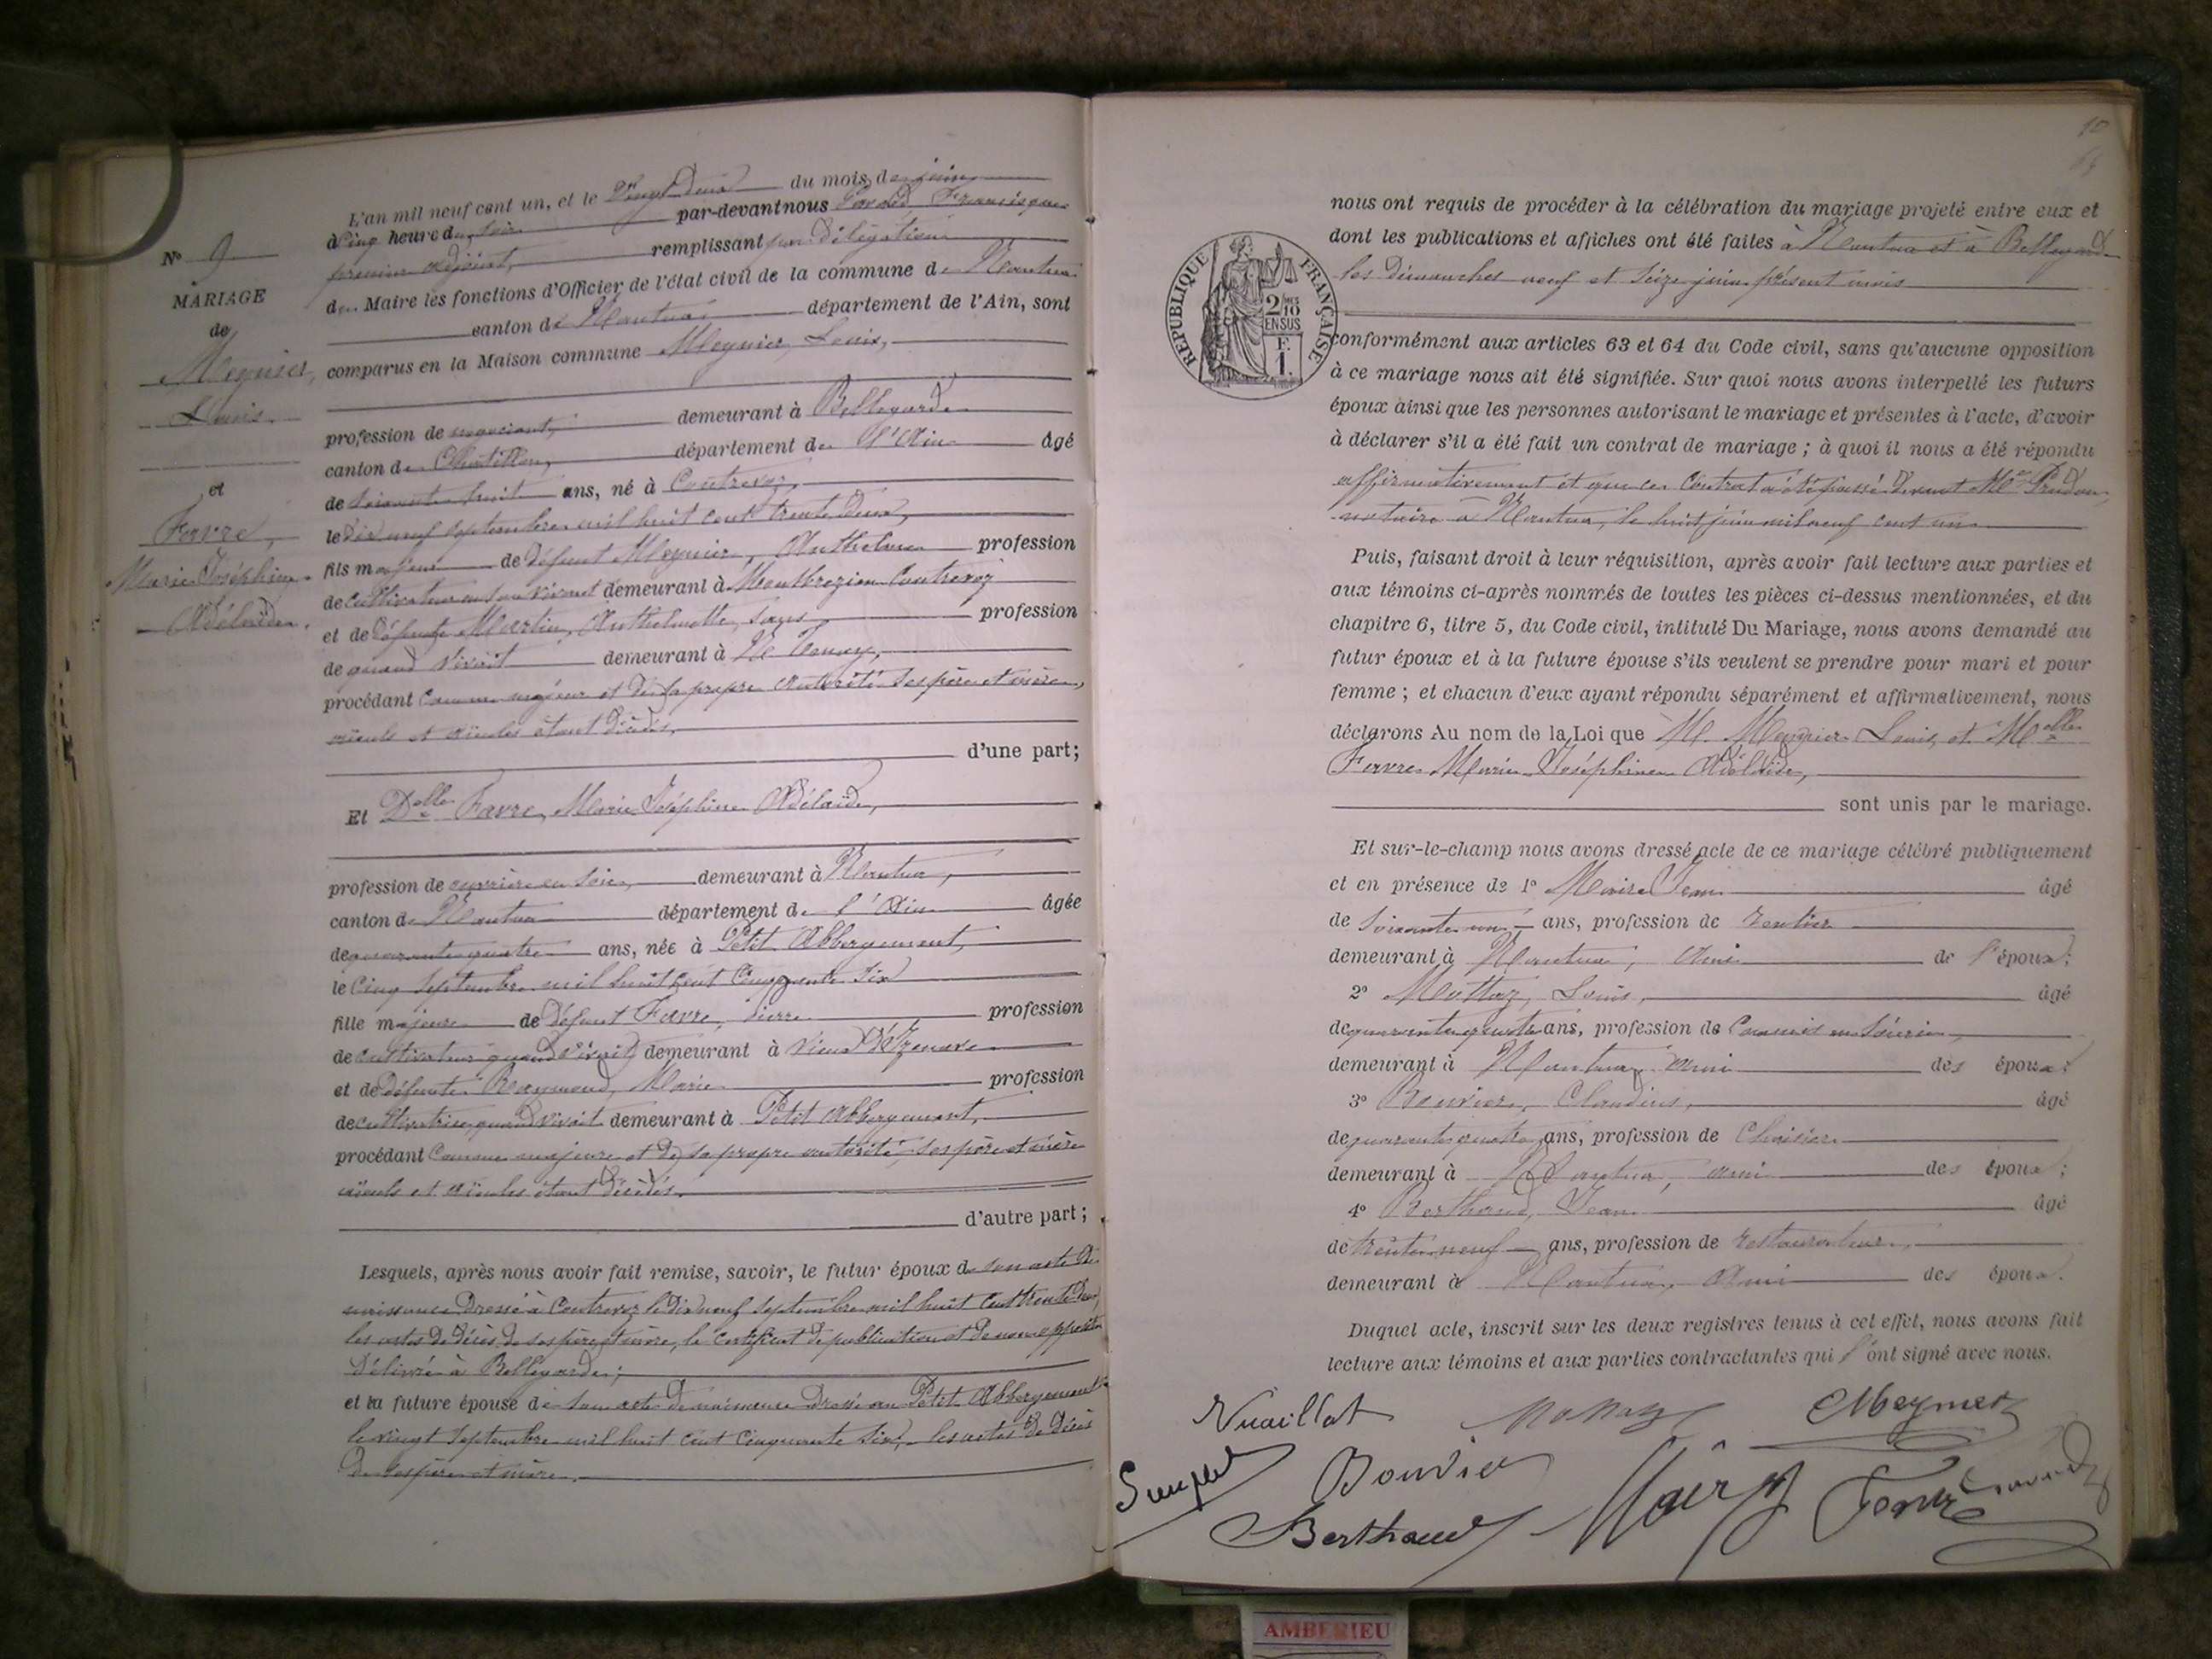 N° 9
MARIAGE
de
Meynier,
Louis.
et
Favre,
Marie Joséphine
Adélaïde.
L'an mil neuf cent un, et le Vingt deux du mois de juin
à Cinq heure du soir par-devant nous Francisque
premier adjoint, remplissant par délégation
du Maire les fonctions d'Officier de l'état civil de la commune de Nantua
canton de Nantua département de l'Ain, sont
comparus en la Maison commune Meynier, Louis,
profession de négociant, demeurant à Bellegarde
canton de Chatillon, département de l'Ain âgé
de soixante huit ans, né à Contrevoz,
le dix neuf septembre mil huit cent trente deux,
fils majeur de défunt Meynier, Anthelme profession
de cultivateur en son vivant demeurant à Montbrezieu Contrevoz
et de défunte Martin, Anthelmette, sans profession
de quand vivait demeurant à
procédant comme majeur et de sa propre autorité ses père et mère,
aïeuls et aïeules étant décédés,
d'une part;
Et Delle Favre, Marie Joséphine Adélaïde,
profession de ouvrière en soie, demeurant à Nantua,
canton de Nantua département de l'Ain âgée
de quarante quatre ans, née à Petit Abbergement,
le Cinq septembre mil huit cent cinquante six
fille majeure de défunt Favre, Pierre profession
de cultivateur quand vivait demeurant à Vieu d'Izenave
et de défunte Raymond, Marie profession
de cultivatrice quand vivait demeurant à Petit Abbergement,
procédant comme majeure et de sa propre autorité, ses père et mère
aïeuls et aïeules étant décédés.
d'autre part;
Lesquels, après nous avoir fait remise, savoir, le futur époux de son acte de
naissance dressé à Contrevoz le dix neuf septembre mil huit cent trente deux,
les actes de décès de ses père et mère, le certificat de publication et de non opposition
délivré à Bellegarde;
et la future épouse de son acte de naissance dressé au Petit Abbergement
le vingt septembre mil huit cent cinquante six, les actes de décès
de ses père et mère.
10
nous ont requis de procéder à la célébration du mariage projeté entre eux et
dont les publications et affiches ont été faites à Nantua et à Bellegarde
les dimanches neuf et seize juin présent mois
RÉPUBLIQUE FRANÇAISE
2/10 MES
EN SUS
F.
1.
conformément aux articles 63 et 64 du Code civil, sans qu'aucune opposition
à ce mariage nous ait été signifiée. Sur quoi nous avons interpellé les futurs
époux ainsi que les personnes autorisant le mariage et présentes à l'acte, d'avoir
à déclarer s'il a été fait un contrat de mariage; à quoi il nous a été répondu
affirmativement et que ce contrat a été passé devant Me Prudon
notaire à Nantua, le huit juin mil neuf cent un
Puis, faisant droit à leur réquisition, après avoir fait lecture aux parties et
aux témoins ci-après nommés de toutes les pièces ci-dessus mentionnées, et du
chapitre 6, titre 5, du Code civil, intitulé Du Mariage, nous avons demandé au
futur époux et à la future épouse s'ils veulent se prendre pour mari et pour
femme; et chacun d'eux ayant répondu séparément et affirmativement, nous
déclarons Au nom de la Loi que M. Meynier Louis et Melle
Favre Marie Joséphine Adélaïde,
sont unis par le mariage.
Et sur-le-champ nous avons dressé acte de ce mariage célébré publiquement
et en présence de 1° Maire Jean âgé
de soixante un ans, profession de rentier
demeurant à Nantua, ami de l'époux;
2° Mottaz, Louis, âgé
de quarante quatre ans, profession de Commis en soierie
demeurant à Nantua ami des époux;
3° Bouvier, Claudius, âgé
de quarante quatre ans, profession de Chaisier
demeurant à Nantua, ami des époux;
4° Berthaud, Jean âgé
de trente neuf ans, profession de restaurateur,
demeurant à Nantua, ami des époux.
Duquel acte, inscrit sur les deux registres tenus à cet effet, nous avons fait
lecture aux témoins et aux parties contractantes qui l'ont signé avec nous.
Vuaillat Mottaz Meynier
Bouvier Favre
Berthaud Maire
AMBERIEU